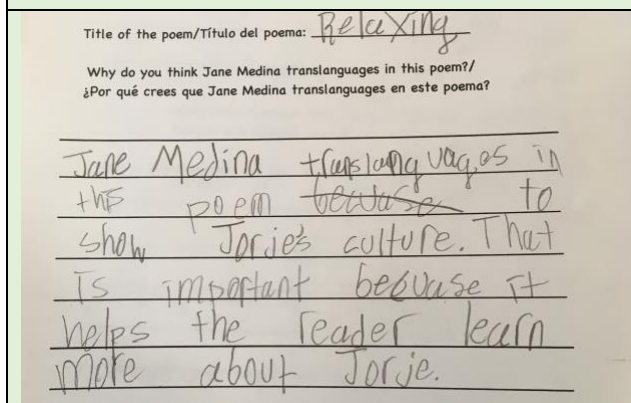 Title of the poem/Título del poema: Relaxing
Why do you think Jane Medina translanguages in this poem?/
¿Por qué crees que Jane Medina translanguages en este poema?
Jane Medina translanguages in
this poem ~~becuase~~ to
show Jorje's culture. That
is important becuase it
helps the reader learn
more about Jorje.